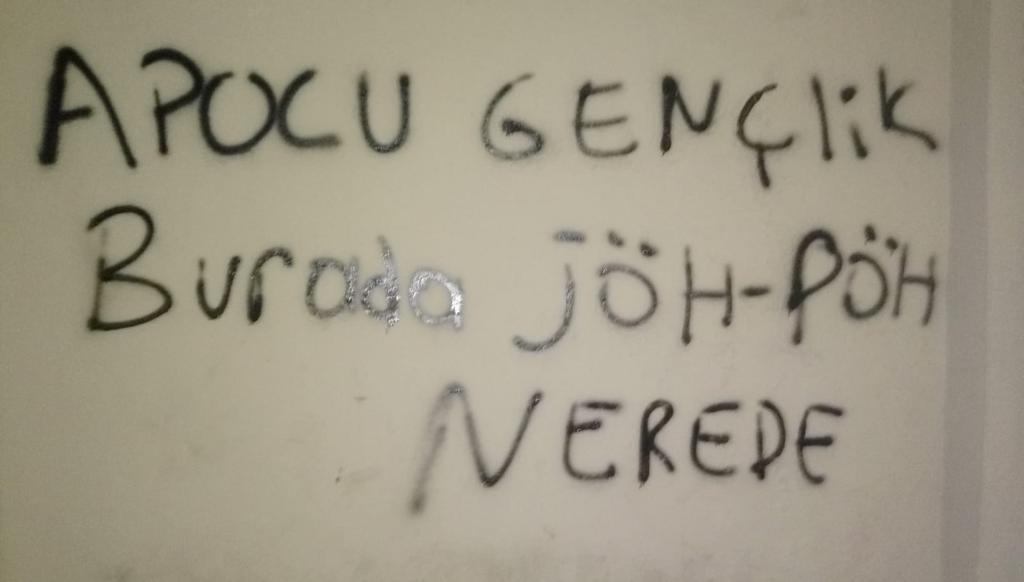 APOCU GENÇliK
Burada JÖH-PÖH
NEREDE